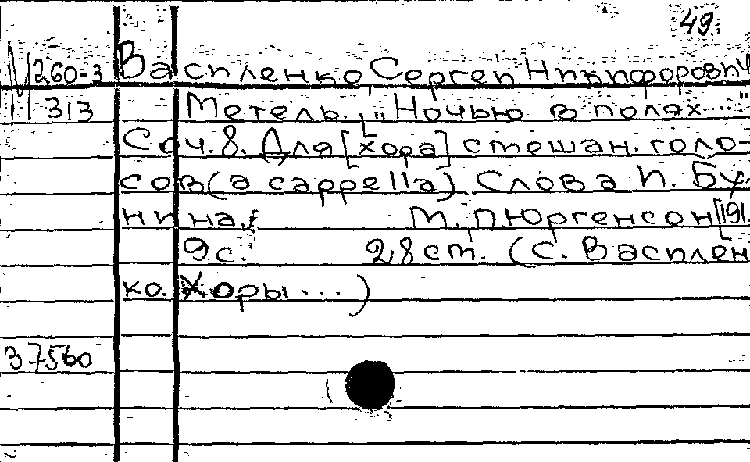 49.
М 260-3 Василенко, Сергей Никифорович
313 Метель. „Ночью в полях..."
Соч. 8. Для [хора] смешан. голо-
сов (a cappella). Слова И. Бу
нина. М., П. Юргенсон [191
9 с. 28 ст. (С. Василен
ко. Хоры...)
37560